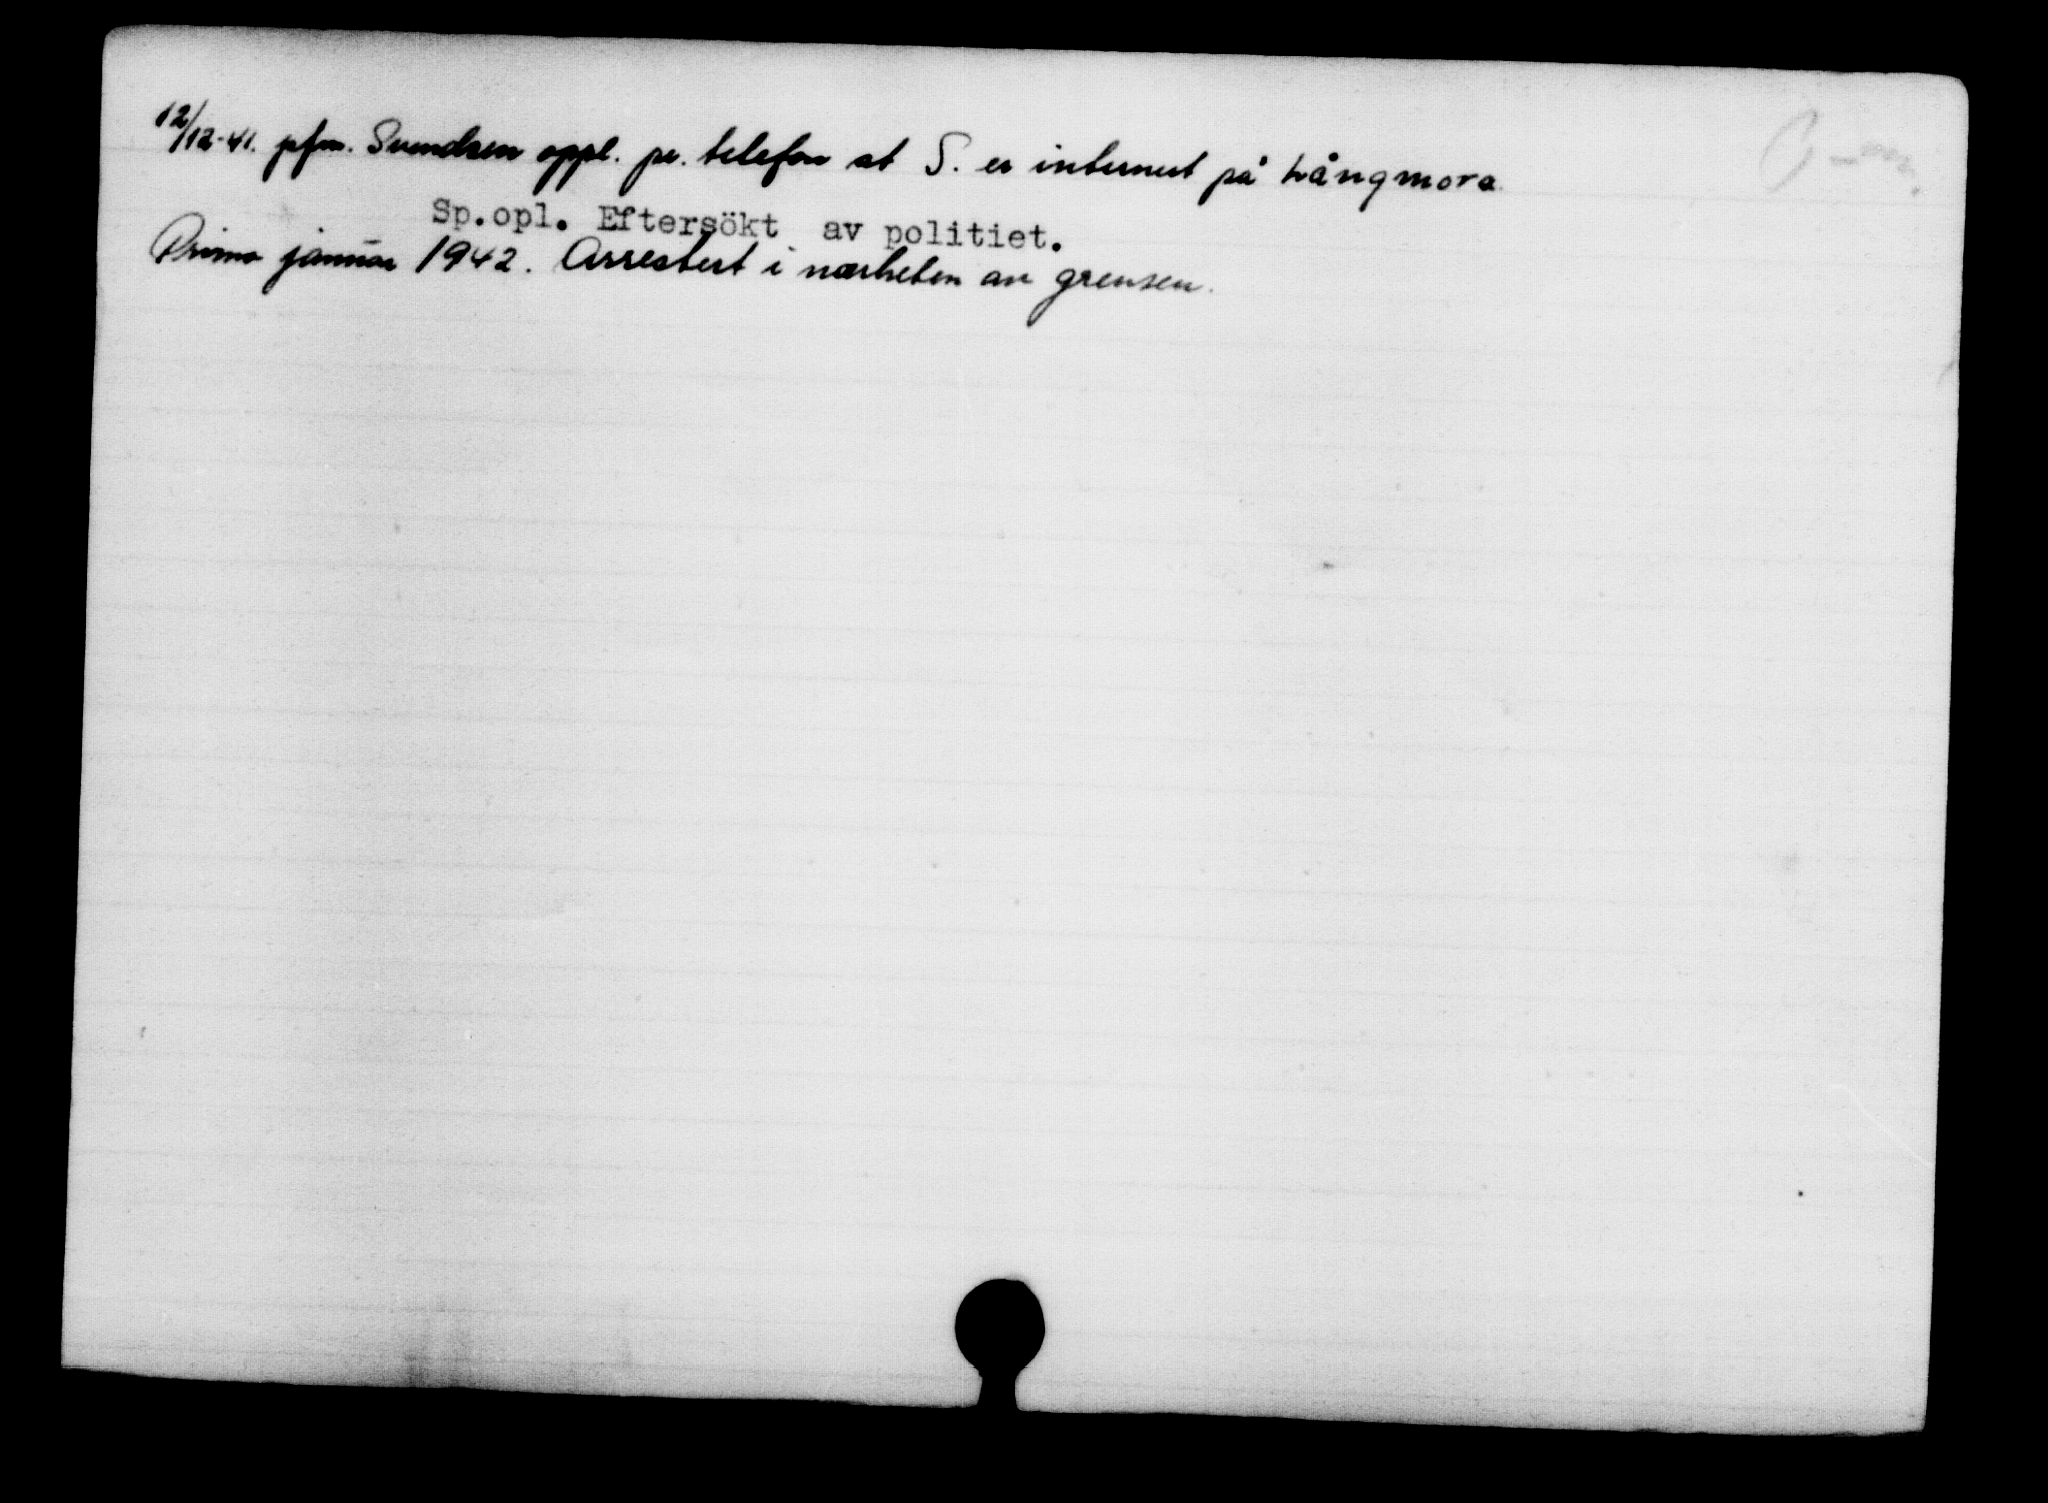 12/12-41. pfm. Svendsen oppl. pr. telefon at S. er internert på Långmora.
Sp.opl. Eftersökt av politiet.
Primo januar 1942. Arrestert i nærheten av grensen.